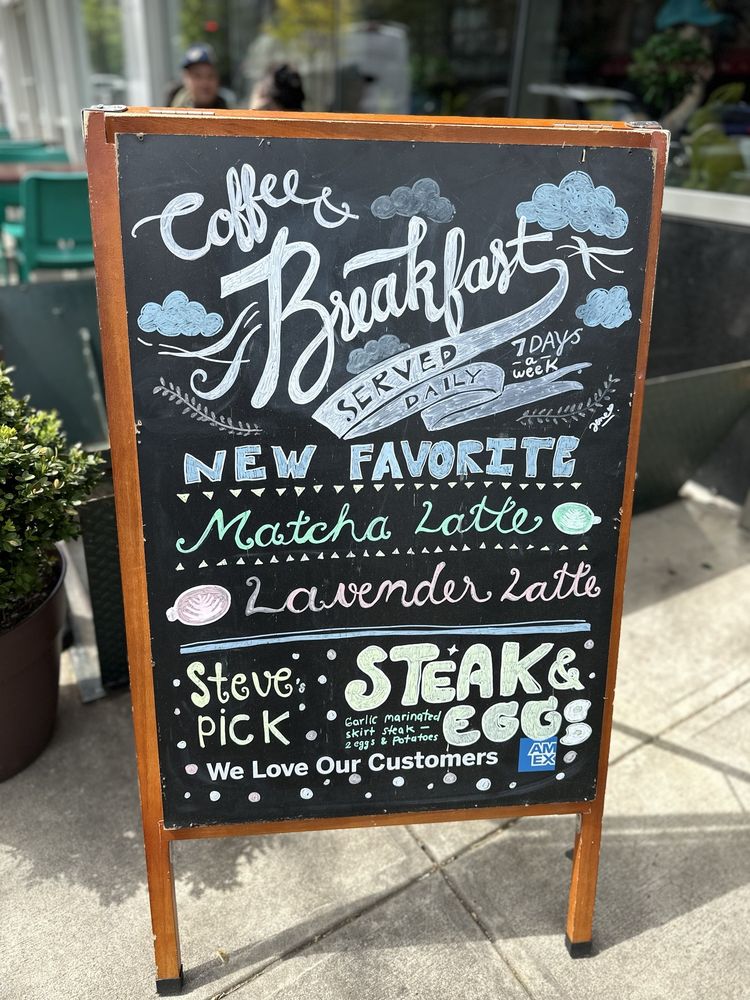 Coffee &
Breakfast
SERVED
DAILY
7 DAYS
- a -
WEEK
NEW FAVORITE
Matcha Latte
Lavender Latte
Steve's
PICK
STEAK &
EGGS
Garlic marinated
skirt steak -
2 eggs & Potatoes
We Love Our Customers
AM
EX